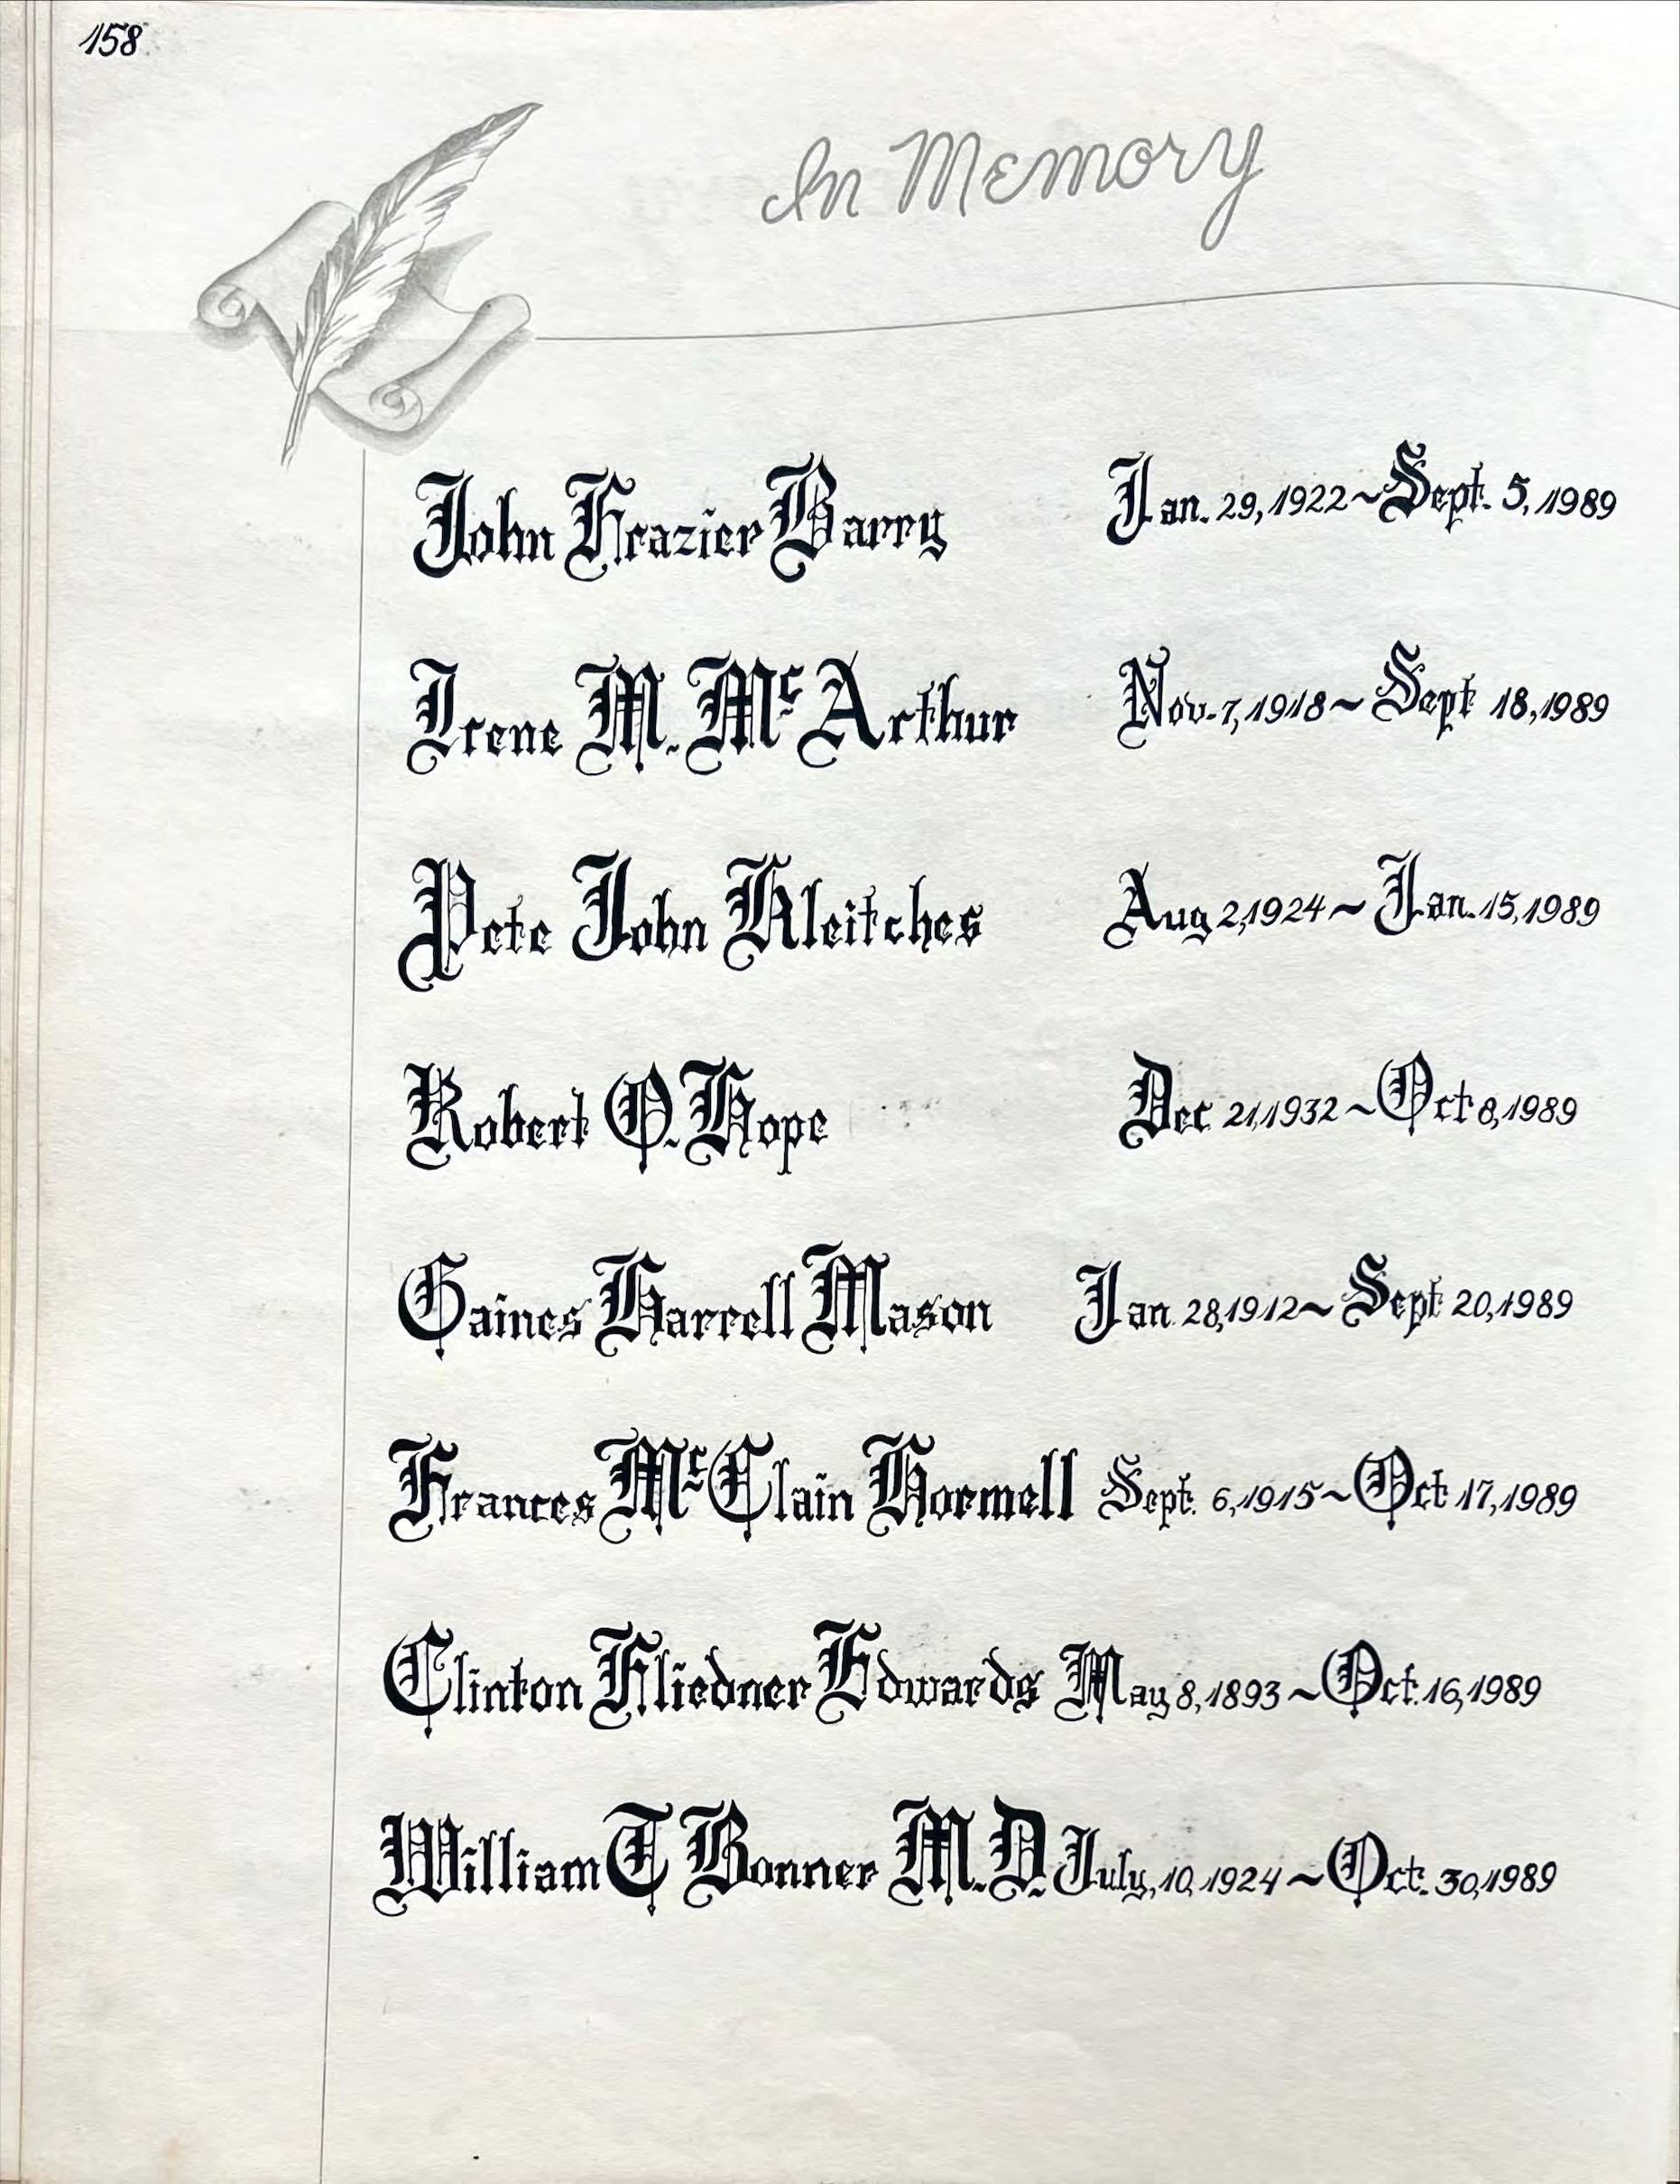 158
In Memory
John Frazier Barry Jan. 29, 1922 ~ Sept. 5, 1989
Irene M. McArthur Nov. 7, 1918 ~ Sept 18, 1989
Pete John Kleitches Aug 2, 1924 ~ Jan. 15, 1989
Robert O. Hope Dec 21, 1932 ~ Oct 8, 1989
Gaines Harrell Mason Jan 28, 1912 ~ Sept 20, 1989
Frances McClain Hormell Sept. 6, 1915 ~ Oct 17, 1989
Clinton Fliedner Edwards May 8, 1893 ~ Oct. 16, 1989
William T Bonner M.D. July, 10, 1924 ~ Oct. 30, 1989